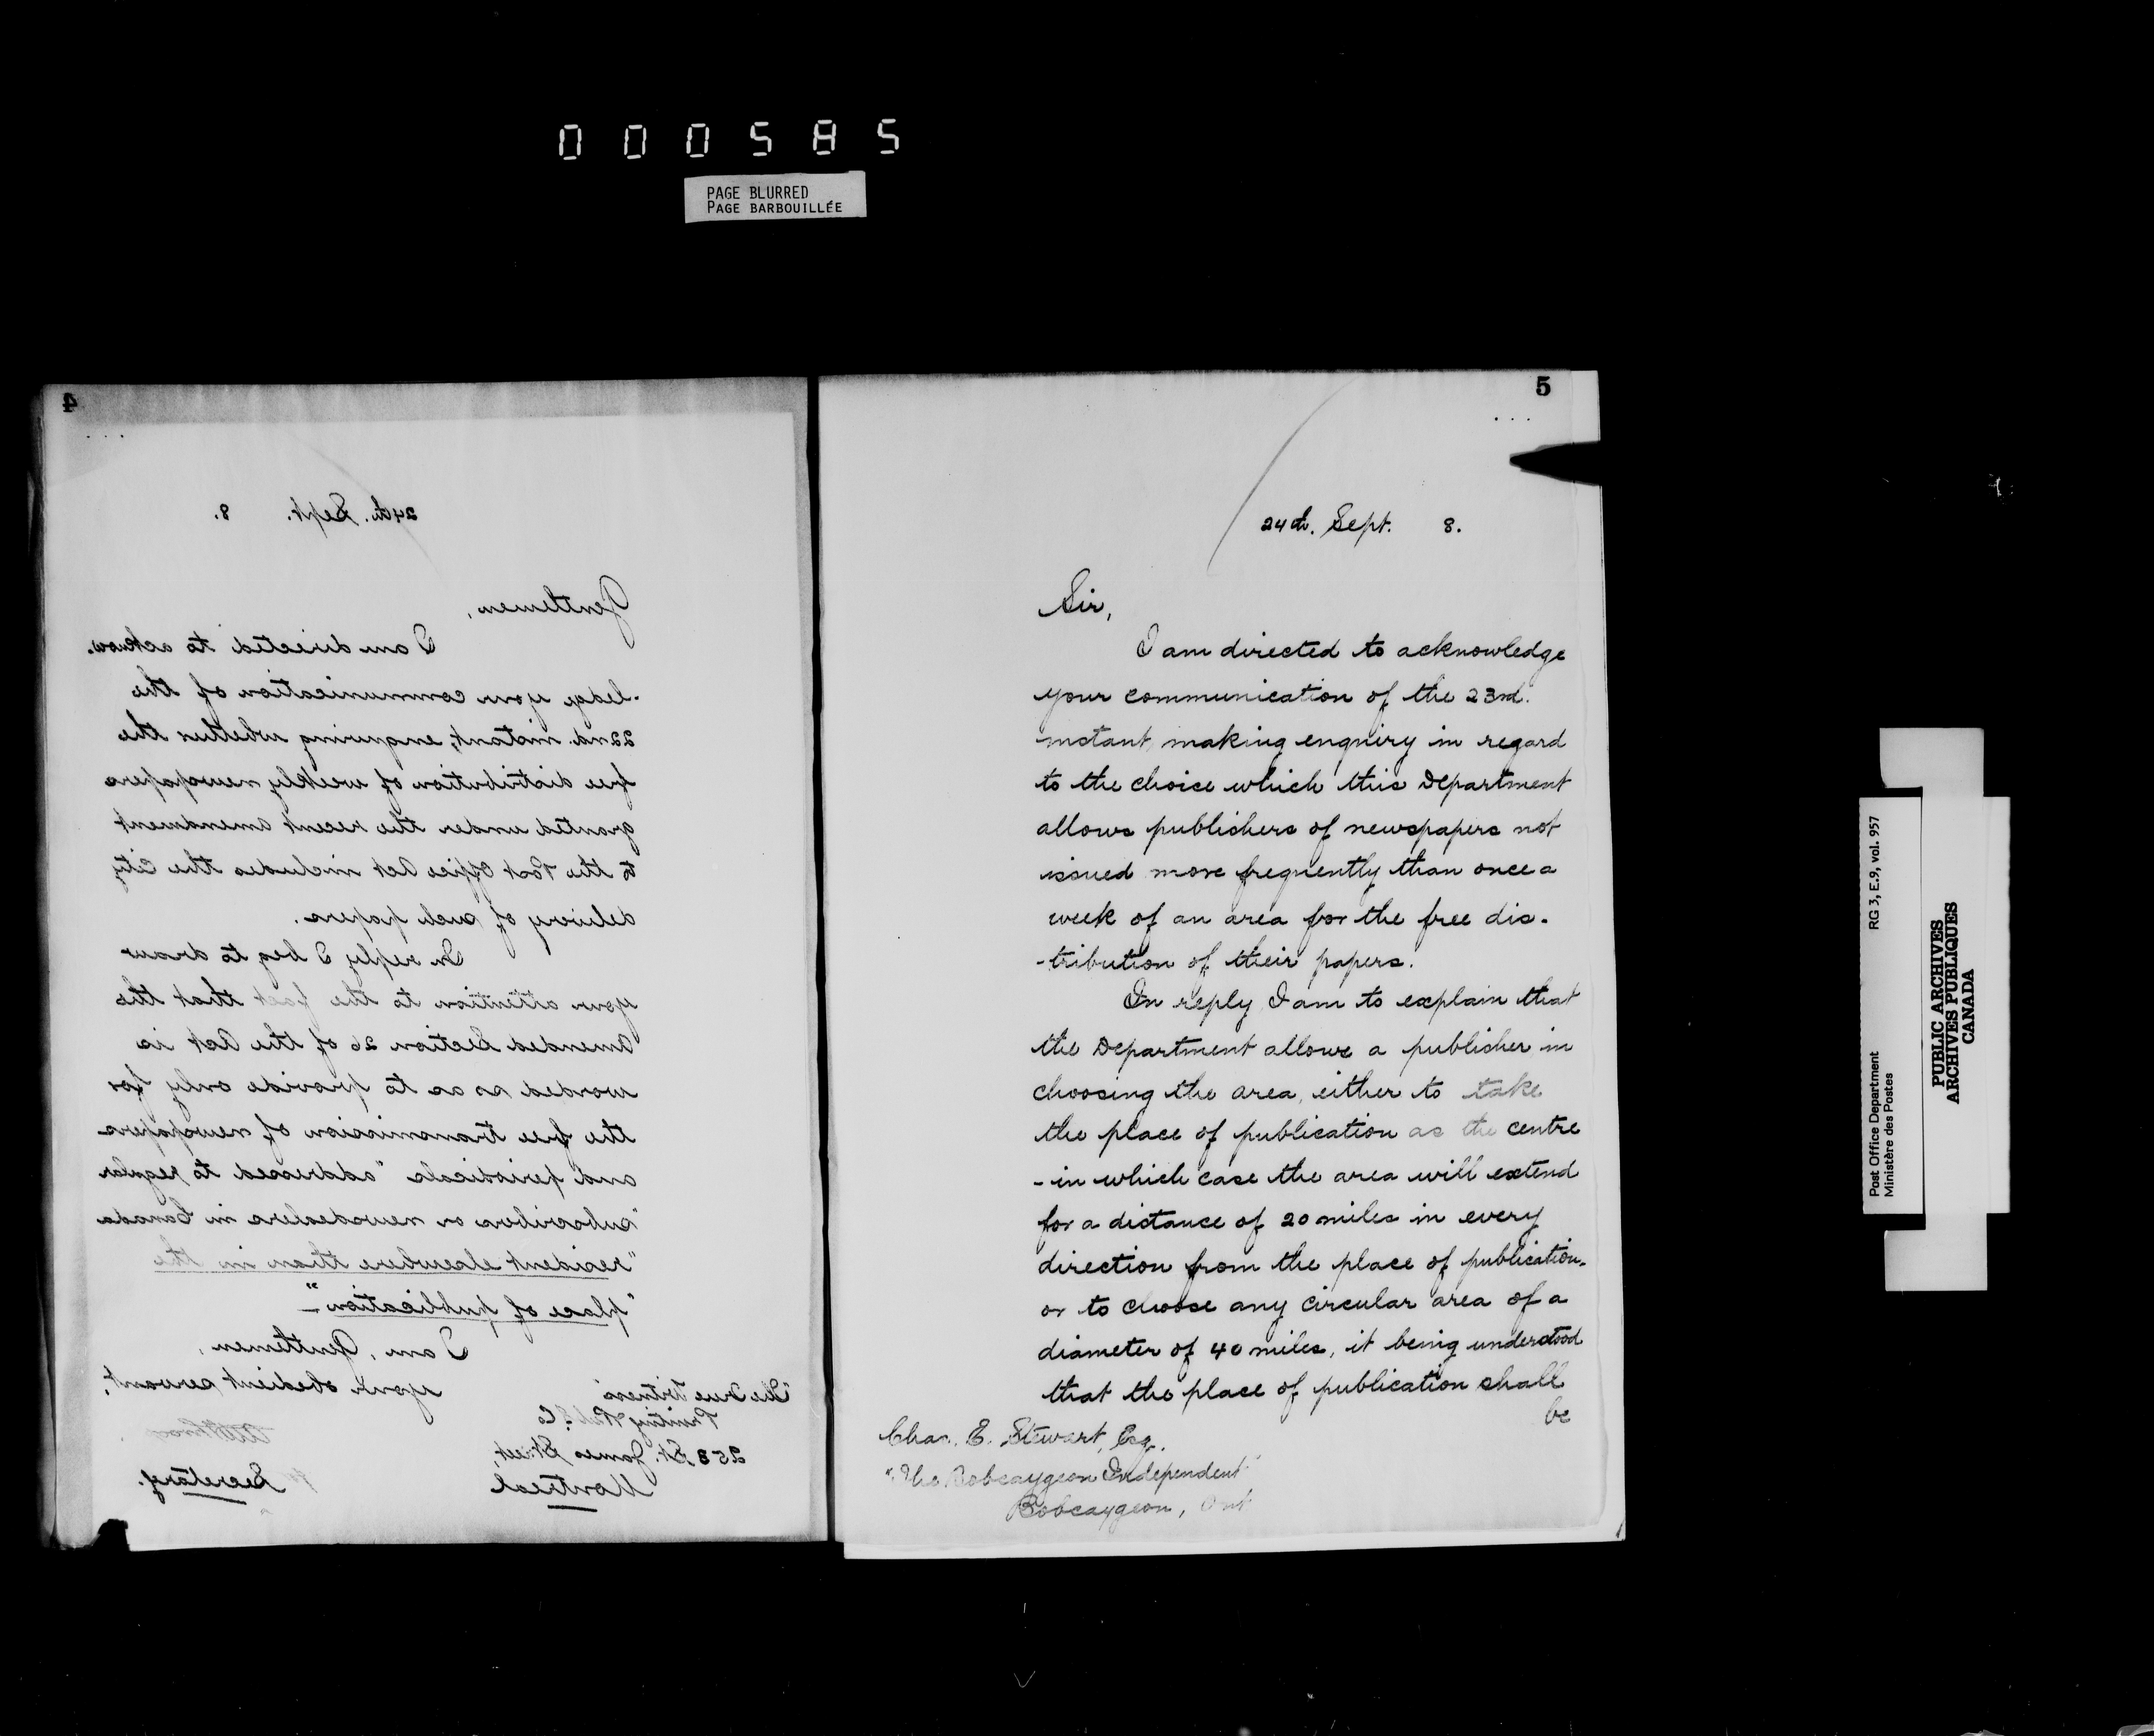 000585
PAGE BLURRED
PAGE BARBOUILLÉE
4
24th. Sept. 8.
Gentlemen,
I am directed to acknow-
-ledge your communication of the
22nd. instant, enquiring whether the
free distribution of weekly newspapers
granted under the recent amendment
to the Post Office Act includes the City
delivery of such papers.
In reply I beg to draw
your attention to the fact that the
amended Section 26 of the Act is
worded so as to provide only for
the free transmission of newspapers
and periodicals "addressed to regular
"subscribers or newsdealers in Canada
"resident elsewhere than in the
"place of publication"-
I am, Gentlemen,
your obedient servant,
"The True Witness"
Printing & Co.
253 St. James Street,
Montreal
Secretary.
5
24th. Sept. 8.
Sir,
I am directed to acknowledge
your communication of the 23rd.
instant, making enquiry in regard
to the choice which this Department
allows publishers of newspapers not
issued more frequently than once a
week of an area for the free dis-
-tribution of their papers.
In reply I am to explain that
the Department allows a publisher in
choosing the area, either to take
the place of publication as the centre
- in which case the area will extend
for a distance of 20 miles in every
direction from the place of publication-
or to choose any circular area of a
diameter of 40 miles, it being understood
that the place of publication shall
be
Chas. E. Stewart, Esq.
"The Bobcaygeon Independent"
Bobcaygeon, Ont
Post Office Department
Ministère des Postes
RG 3, E.9, vol. 957
PUBLIC ARCHIVES
ARCHIVES PUBLIQUES
CANADA